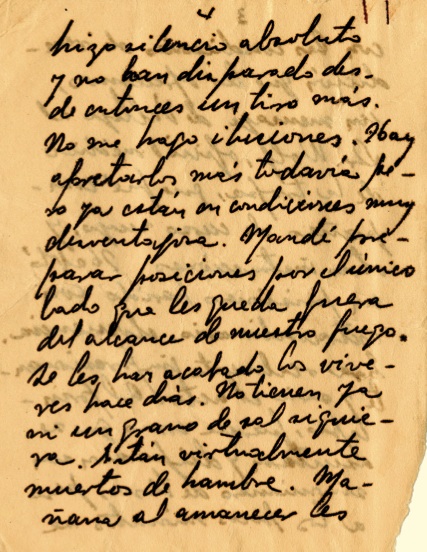 4
hizo silencio absoluto
y no han disparado des-
de entonces un tiro más.
No me hago ilusiones. Hay
apretarlos más todavía pe-
ro ya están en condiciones muy
desventajosa. Mandé pre-
parar posiciones por el único
lado que les queda fuera
del alcance de nuestro fuego.
Se les han acabado los vive-
res hace días. No tienen ya
ni un grano de sal siquie-
ra. Están virtualmente
muertos de hambre. Ma-
ñana al amanecer les